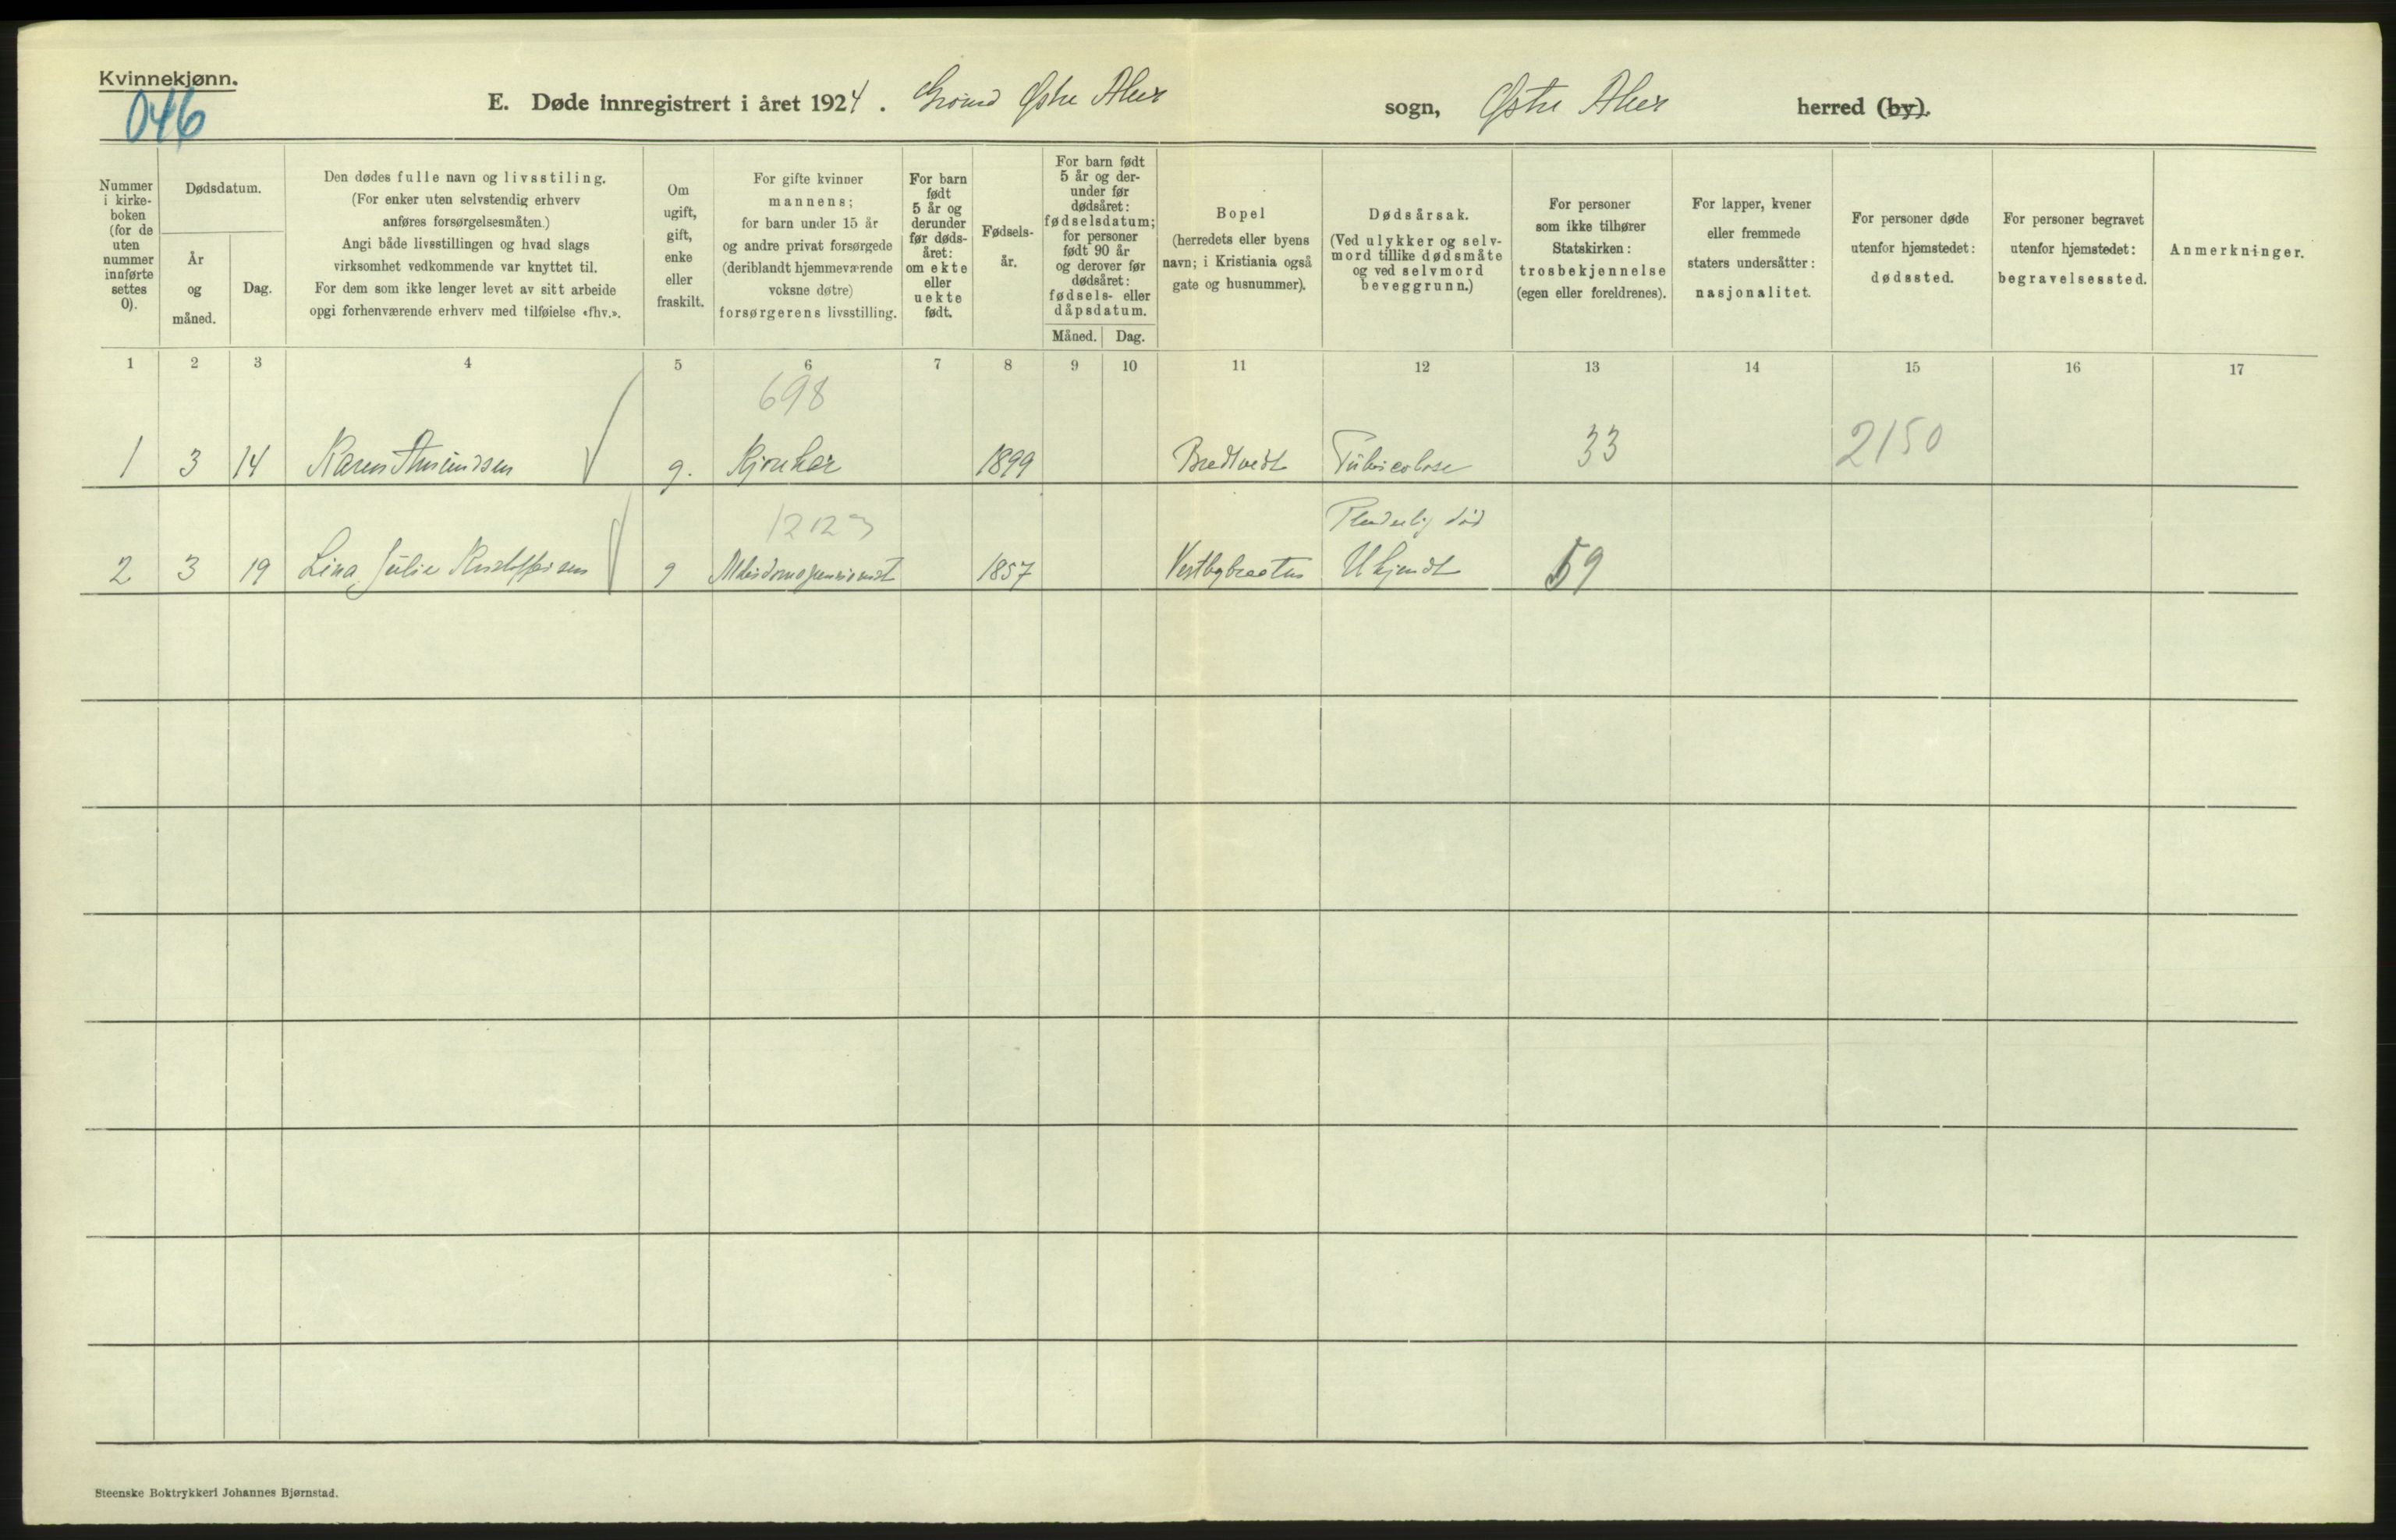 Kvinnekjønn.
046
E. Døde innregistrert i året 1924. Grorud Østre Aker sogn, Østre Aker herred (by).
Nummer i kirke-boken (for de uten nummer innførte settes 0).
Dødsdatum.
År og måned.
Dag.
Den dødes fulle navn og livsstiling.
(For enker uten selvstendig erhverv
anføres forsørgelsesmåten.)
Angi både livsstillingen og hvad slags
virksomhet vedkommende var knyttet til.
For dem som ikke lenger levet av sitt arbeide
opgi forhenværende erhverv med tilføielse «fhv.».
Om
ugift,
gift,
enke
eller
fraskilt.
For gifte kvinner
mannens;
for barn under 15 år
og andre privat forsørgede
(deriblandt hjemmeværende
voksne døtre)
forsørgerens livsstilling.
For barn
født
5 år og
derunder
før døds-
året:
om ekte
eller
uekte
født.
Fødsels-
år.
For barn født
5 år og der-
under før
dødsåret:
fødselsdatum;
for personer
født 90 år
og derover før
dødsåret:
fødsels- eller
dåpsdatum.
Måned. Dag.
Bopel
(herredets eller byens
navn; i Kristiania også
gate og husnummer).
Dødsårsak.
(Ved ulykker og selv-
mord tillike dødsmåte
og ved selvmord
beveggrunn.)
For personer
som ikke tilhører
Statskirken:
trosbekjennelse
(egen eller foreldrenes).
For lapper, kvener
eller fremmede
staters undersåtter:
nasjonalitet.
For personer døde
utenfor hjemstedet:
dødssted.
For personer begravet
utenfor hjemstedet:
begravelsessted.
Anmerkninger.
1 2 3 4 5 6 7 8 9 10 11 12 13 14 15 16 17
698
1 3 14 Karen Amundsen g. Kjørekar 1899 Bredtvedt Tuberculose 33 2150
12123 Pludselig død
2 3 19 Lina Julie Rudolfsen g Alderdomspensionist 1857 Vestbybraaten Ukjendt 59
Steenske Boktrykkeri Johannes Bjørnstad.